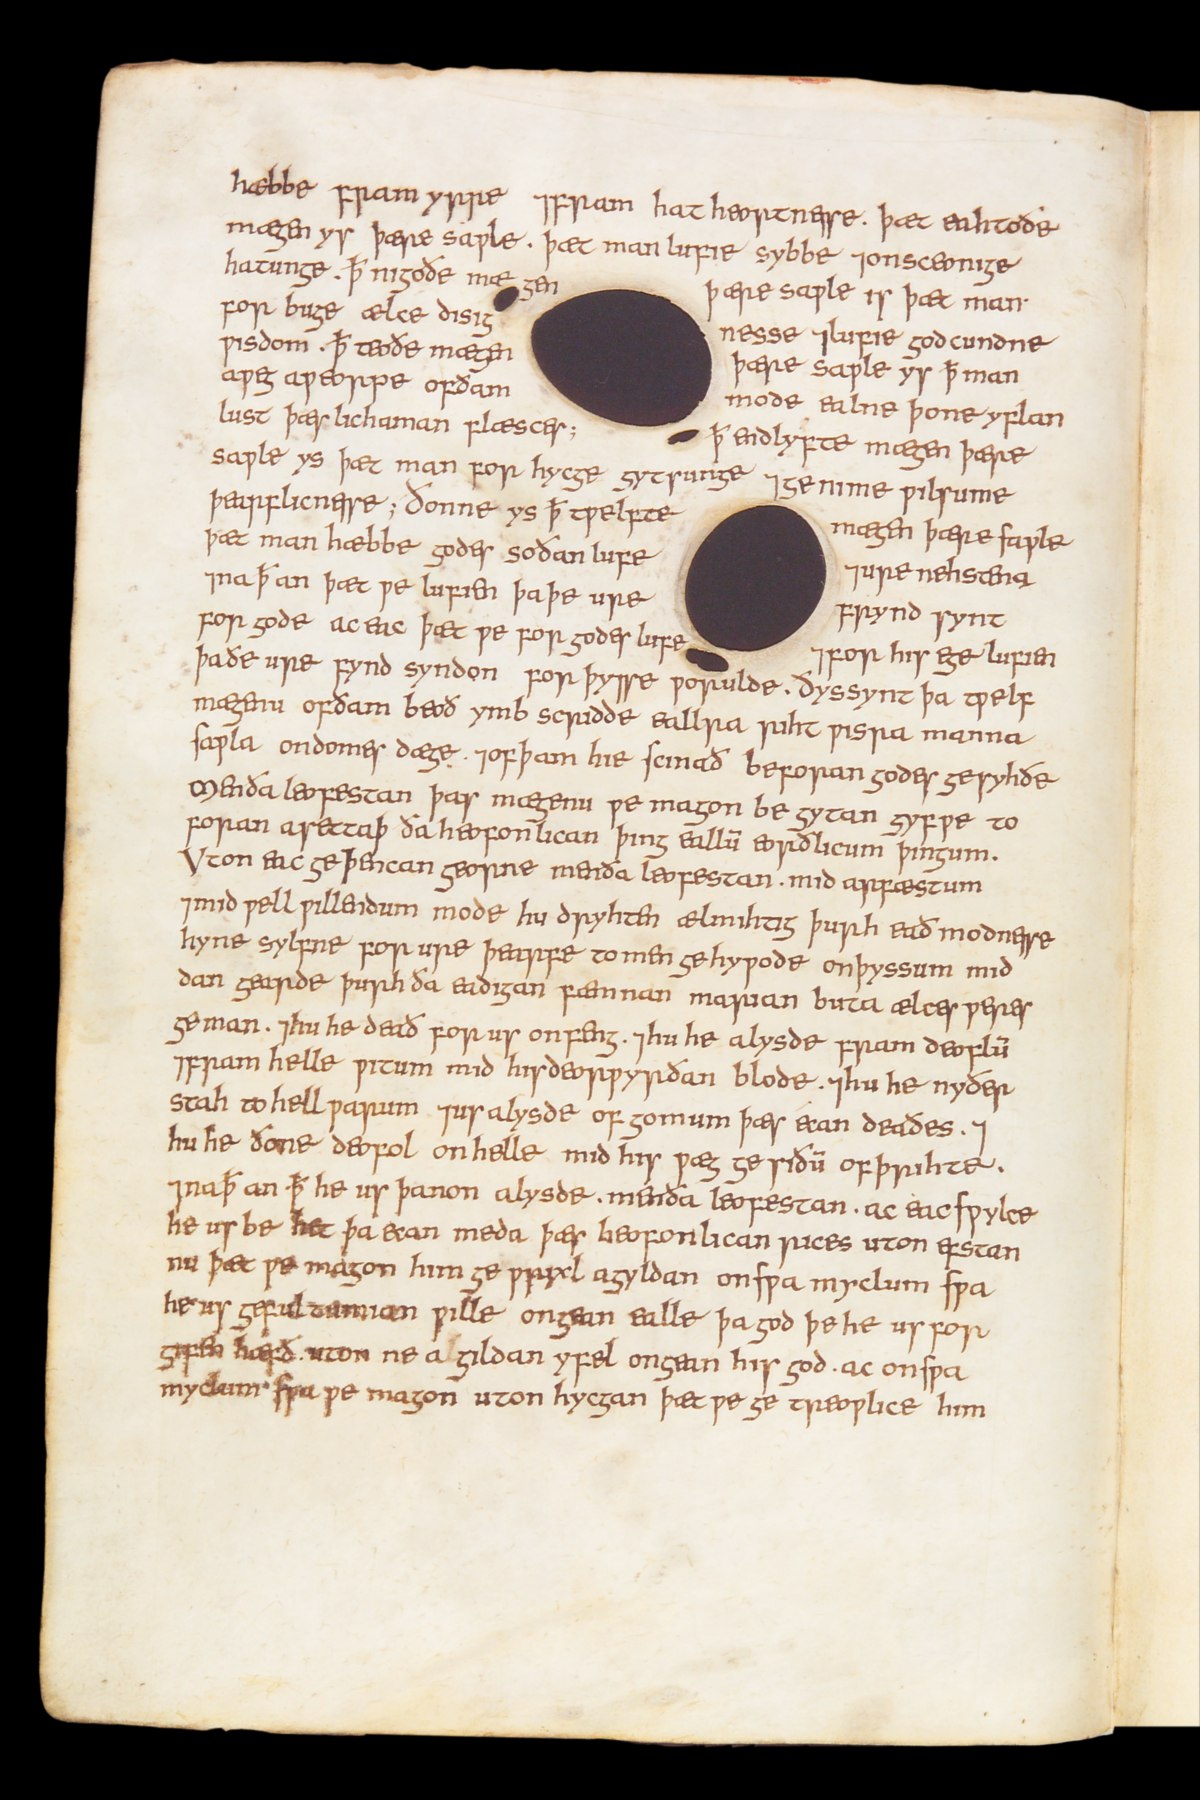 hæbbe fram yrre ⁊fram hatheortnesse. þæt eahtoðe
mægen ys þære saƿle. þæt man lufie sybbe ⁊onsceonige
hatunge. ꝥ nigoðe mægen þære saƿle is þæt man
forbuge ælce disignesse ⁊lufie godcundne
ƿisdom. ꝥ teoðe mægen þære saƿle ys ꝥ man
aƿeg aƿeorpe ofðam mode ealne þone yflan
lust þæs lichaman flæsces; ꝥ endlyfte mægen þære
saƿle ys þæt man forhycge gytsunge ⁊genime ƿilsume
þearflicnesse; ðonne ys ꝥ tƿelfte mægen þære saƿle
þæt man hæbbe godes soðan lufe ⁊ure nehstena
⁊na ꝥ an þæt ƿe lufien þa þe ure frynd synt
for gode ac eac þæt ƿe for godes lufe ⁊for his ege lufien
þaðe ure fynd syndon for þysse ƿorulde. ðyssynt þa tƿelf
mægenu ofðam beoð ymbscridde eallra rihtƿisra manna
saƿla ondomes dæge. ⁊ofþam hie scinað beforan godes gesyhðe
Men ða leofestan þas mægenu ƿe magon begytan gyf ƿe to
foran asettaþ ða heofonlican þing eallū eorðlicum þingum.
Vton eac geþencan georne men ða leofestan. mid arfæstum
⁊mid ƿell ƿillendum mode hu dryhten ælmihtig þurh eaðmodnesse
hyne sylfne for ure þearfe to men gehyƿode onþyssum mid
dangearde þurh ða eadigan fæmnan marian buta ælces ƿeres
geman. ⁊hu he deað for us onfeng. ⁊hu he alysde fram deoflū
⁊fram helle ƿitum mid his deorƿyrðan blode. ⁊hu he nyðer
stah to hellƿarum ⁊us alysde of gomum þæs ecan deaðes. ⁊
hu he ðone deofol onhelle mid his ƿægeriðū ofþrihte.
⁊na ꝥ an ꝥ he us þanon alysde. men ða leofestan. ac eac sƿylce
he us behet þa ecan meda þæs heofonlican rices uton efstan
nu þæt ƿe magon him ge agyldan onsƿa myclum sƿa
he us gefultumian ƿille ongean ealle þa god þe he us for
gifen hæfð. uton ne agildan yfel ongean his god. ac onsƿa
myclum sƿa ƿe magon uton hycgan þæt ƿe getreoƿlice him